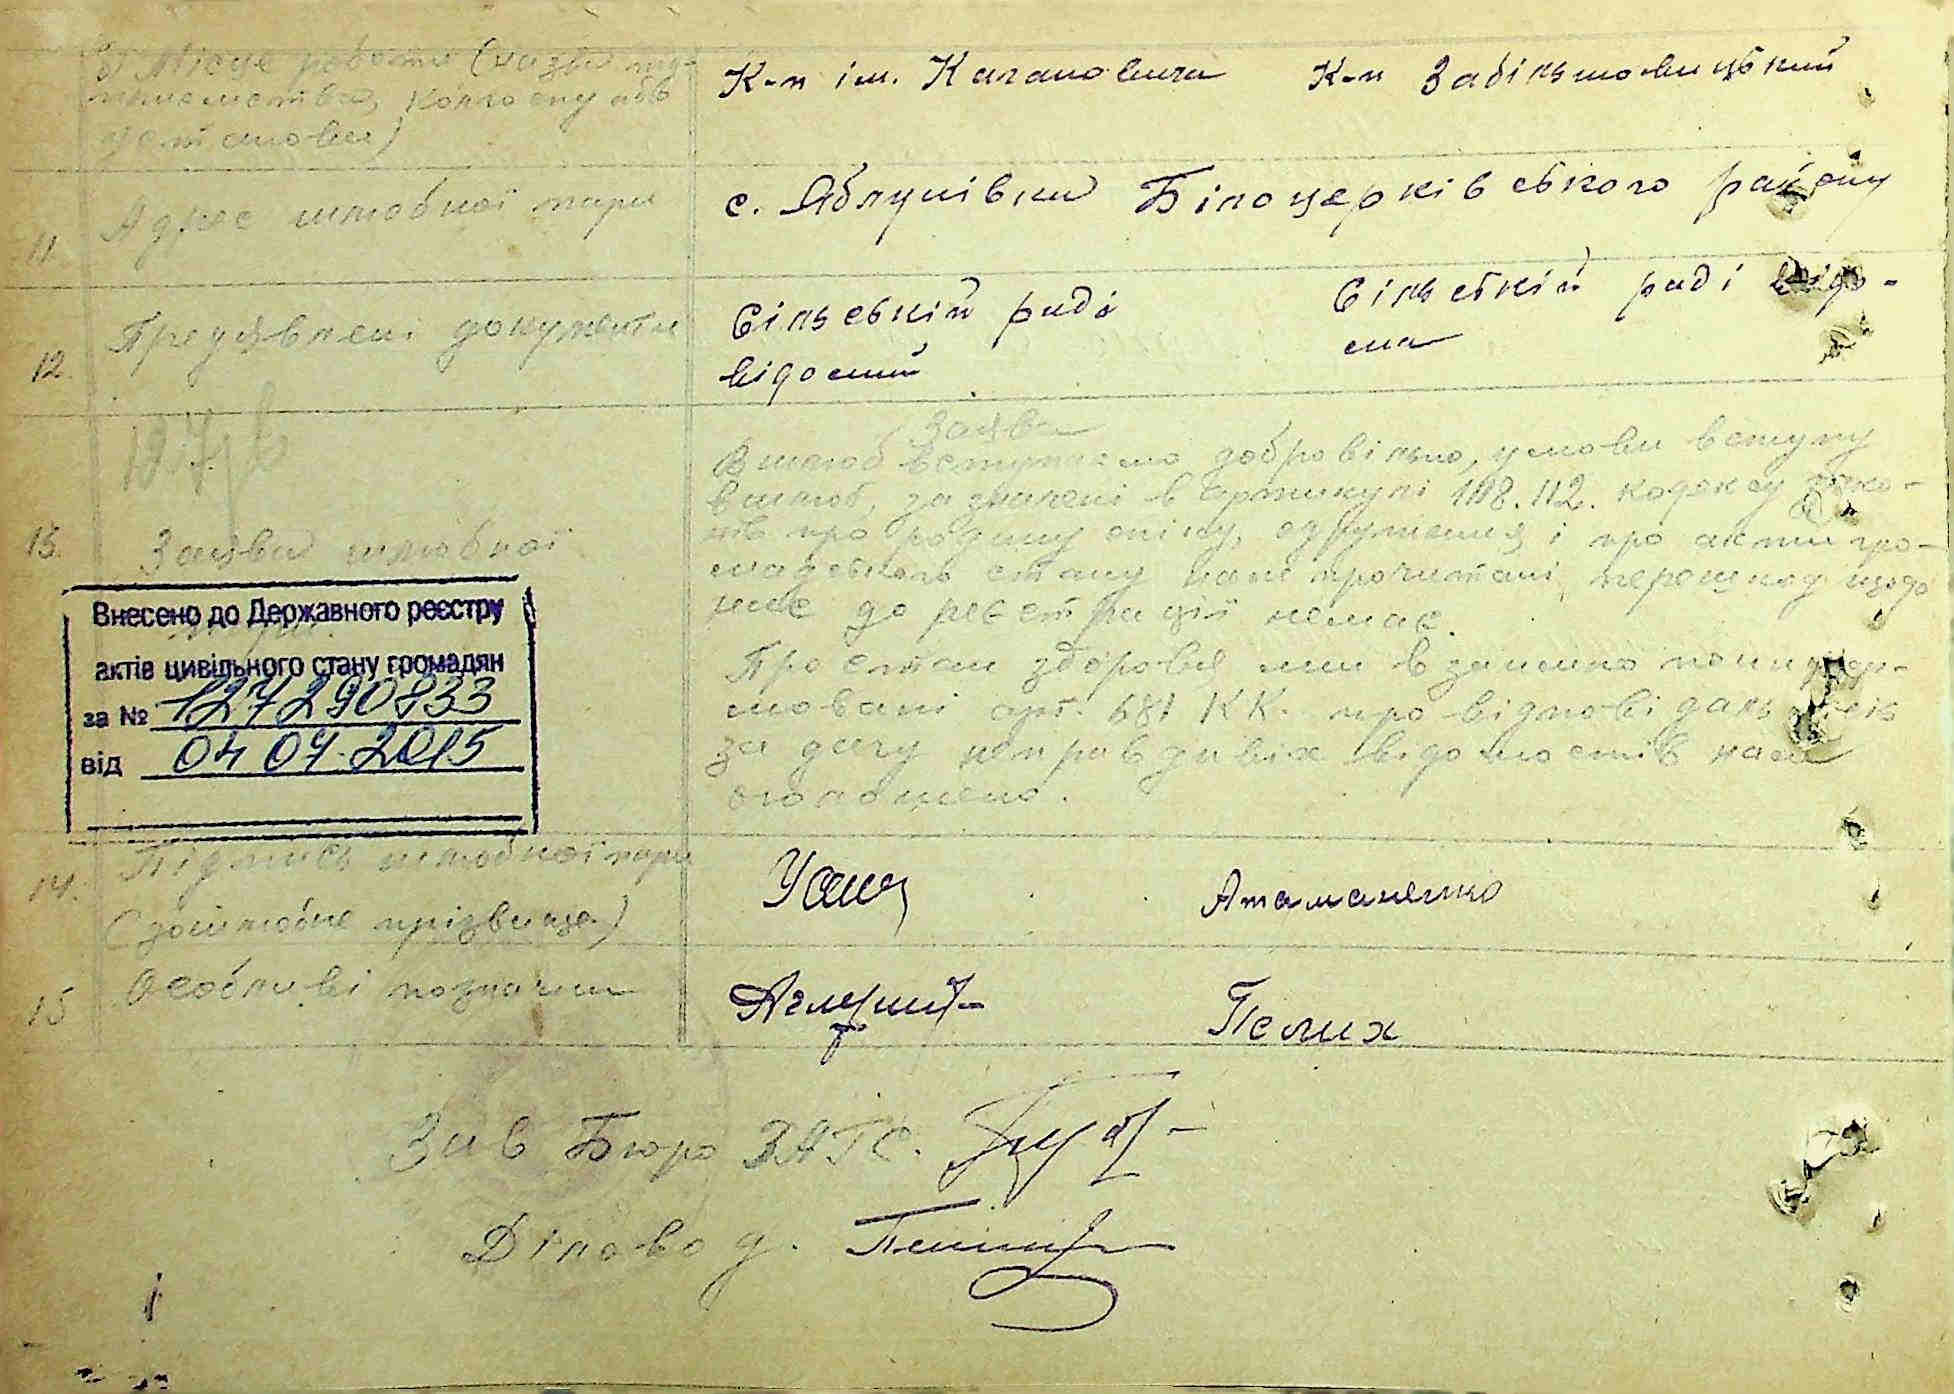 б) Місце роботи (назва під-
приємства, колгоспу або
установи)
К-п ім. Кагановича К-п Забільшовицький
11. Адрес шлюбної пари
с. Яблунівка Білоцерківського району
12. Предявлені документи
Сільській раді
відомий
Сільській раді відо-
ма
Заява
В шлюб вступаємо добровільно, умови вступу
в шлюб, зазначені в артикулі 108.112. кодексу зако-
нів про родину опіку, одруження і про акти гро-
мадського стану нам прочитані, перешкод щодо
до реєстрації немає.
Про стан здоровя ми взаємно поінфор-
мовані арт. КК. про відповідальність
за дачу неправдивих відомостів нам
оголошено.
13. Заява шлюбної
пари
Внесено до Державного реєстру
актів цивільного стану громадян
за № 127290833
від 04 07. 2015
14. Підпись шлюбної пари
(дошлюбне прізвище)
Атаманенко
15 Особливі позначки
Пелих
Зав Бюро ЗАГС.
Діловод.